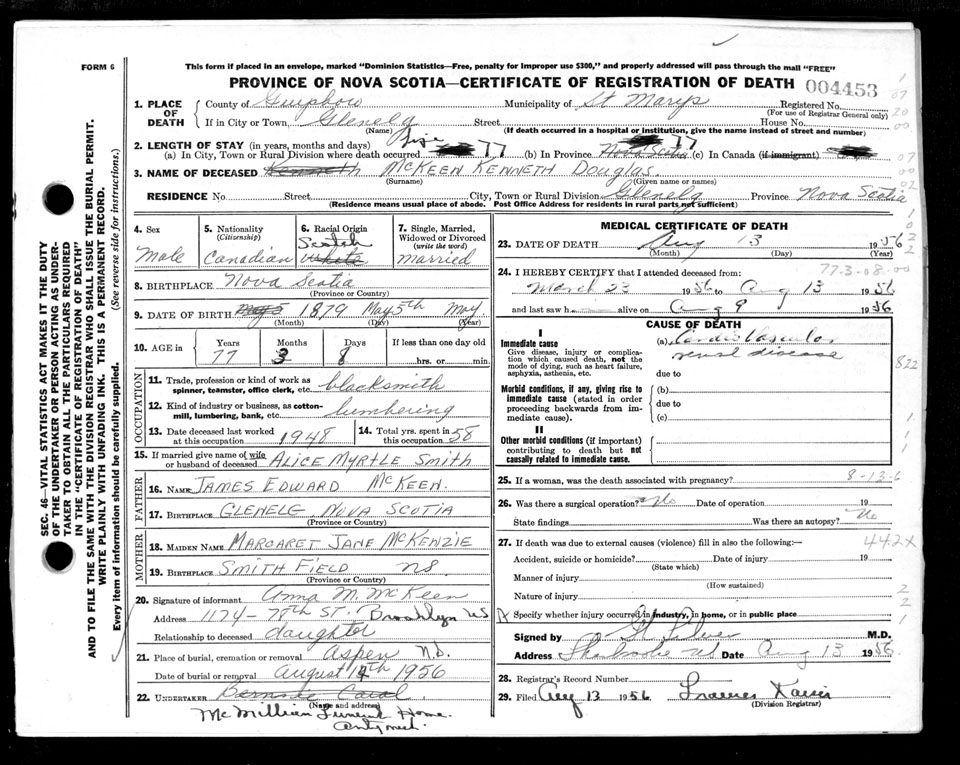 FORM 6
This form if placed in an envelope, marked "Dominion Statistics—Free, penalty for improper use $300," and properly addressed will pass through the mail "FREE"
PROVINCE OF NOVA SCOTIA—CERTIFICATE OF REGISTRATION OF DEATH 004453
1. PLACE OF DEATH County of Guysboro Municipality of St Marys Registered No.
(For use of Registrar General only)
If in City or Town, Glenelg Street House No.
(Name) (If death occurred in a hospital or institution, give the name instead of street and number)
2. LENGTH OF STAY (in years, months and days) Life
(a) In City, Town or Rural Division where death occurred 77 (b) In Province Nova Scotia 77 (c) In Canada (if immigrant)
3. NAME OF DECEASED Kenneth McKEEN KENNETH Douglas
(Surname) (Given name or names)
RESIDENCE No Street City, Town or Rural Division Glenelg Province Nova Scotia
(Residence means usual place of abode. Post Office Address for residents in rural parts not sufficient)
4. Sex Male
5. Nationality (Citizenship) Canadian
6. Racial Origin Scotch White
7. Single, Married, Widowed or Divorced (write the word) married
8. BIRTHPLACE Nova Scotia
(Province or Country)
9. DATE OF BIRTH May 5 1879 May 5th May
(Month) (Day) (Year)
10. AGE in Years 77 Months 3 Days 8 If less than one day old
hrs. or min.
OCCUPATION
11. Trade, profession or kind of work as spinner, teamster, office clerk, etc. blacksmith
12. Kind of industry or business, as cotton-mill, lumbering, bank, etc. lumbering
13. Date deceased last worked at this occupation 1948 14. Total yrs. spent in this occupation 58
15. If married give name of wife or husband of deceased ALICE MYRTLE SMITH
FATHER
16. NAME JAMES EDWARD McKEEN.
17. BIRTHPLACE GLENELG NOVA SCOTIA
(Province or Country)
MOTHER
18. MAIDEN NAME MARGARET JANE McKENZIE
19. BIRTHPLACE SMITH FIELD NS
(Province or Country)
20. Signature of informant Anna M. McKeen
Address 1174-78TH ST. Brooklyn
Relationship to deceased daughter
21. Place of burial, cremation or removal ASPEN N.S.
Date of burial or removal August 14th 1956
22. UNDERTAKER
(Name and address)
McMillian Funeral Home.
MEDICAL CERTIFICATE OF DEATH
23. DATE OF DEATH Aug 13 1956
(Month) (Day) (Year)
24. I HEREBY CERTIFY that I attended deceased from: 77-3-08-00
March 23 1956 to Aug 13 1956
and last saw h alive on Aug 9 1956
CAUSE OF DEATH
I
Immediate cause
Give disease, injury or complication which caused death, not the mode of dying, such as heart failure, asphyxia, asthenia, etc.
(a) Cardio Vascular
renal disease
due to
822
Morbid conditions, if any, giving rise to immediate cause (stated in order proceeding backwards from immediate cause).
(b)
due to
(c)
II
Other morbid conditions (if important) contributing to death but not causally related to immediate cause.
25. If a woman, was the death associated with pregnancy? 8-13-6
26. Was there a surgical operation? No Date of operation 19
State findings Was there an autopsy? No
27. If death was due to external causes (violence) fill in also the following:— 442X
Accident, suicide or homicide? Date of injury 19
(State which)
Manner of injury
(How sustained)
Nature of injury
Specify whether injury occurred in industry, in home, or in public place
Signed by M.D.
Address Sherbrooke NS Date Aug 13 1956.
28. Registrar's Record Number
29. Filed Aug 13 1956 Frances Kaiser
(Division Registrar)
SEC. 46—VITAL STATISTICS ACT MAKES IT THE DUTY
OF THE UNDERTAKER OR PERSON ACTING AS UNDER-
TAKER TO OBTAIN ALL THE PARTICULARS REQUIRED
IN THE "CERTIFICATE OF REGISTRATION OF DEATH"
AND TO FILE THE SAME WITH THE DIVISION REGISTRAR WHO SHALL ISSUE THE BURIAL PERMIT.
WRITE PLAINLY WITH UNFADING INK. THIS IS A PERMANENT RECORD.
Every item of information should be carefully supplied. (See reverse side for instructions.)